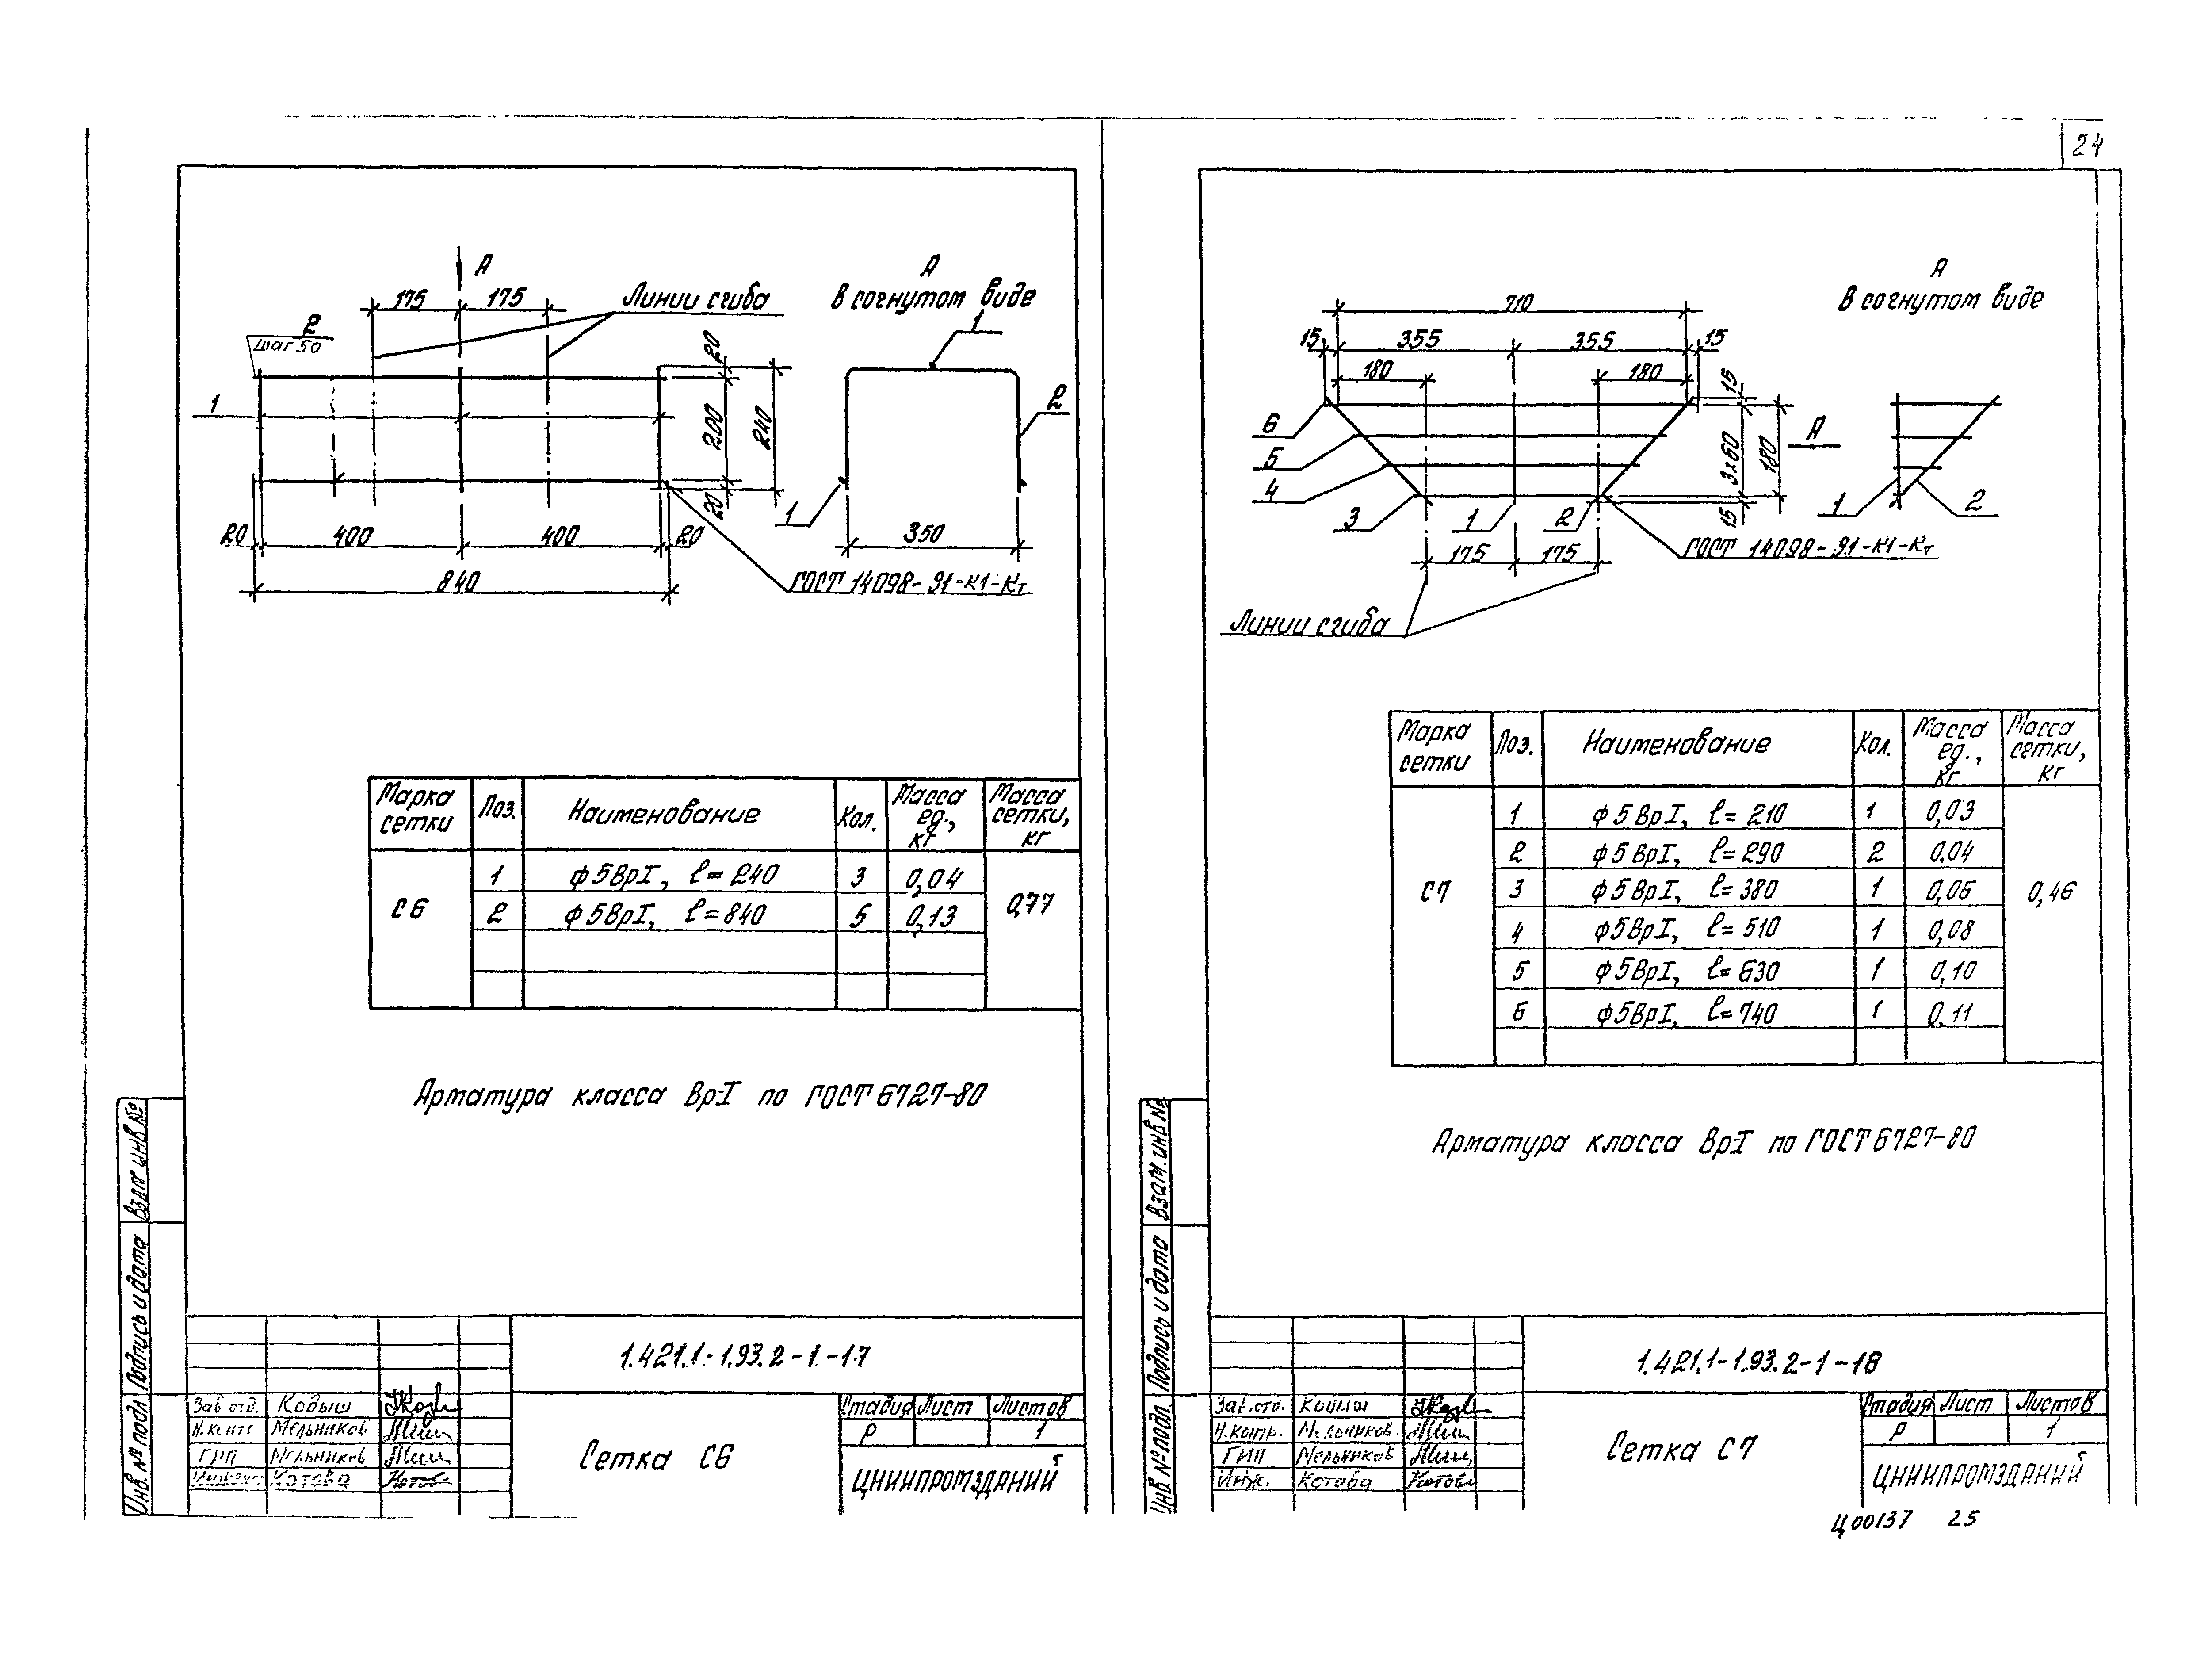 24
А
175
175
Линии сгиба
2
шаг 50
1
20
200
240
20
20
400
400
20
840
ГОСТ 14098-91-К1-Кт
А
в согнутом виде
1
2
1
350
Марка сетки
Поз.
Наименование
Кол.
Масса ед., кг
Масса сетки, кг
С6
1
ф5ВрI, ℓ=240
3
0,04
0,77
2
ф5ВрI, ℓ=840
5
0,13
Арматура класса Вр-I по ГОСТ 6727-80
Взам инв №
Подпись и дата
Инв. № подл
1.421.1-1.93.2-1-17
Зав отд.
Кодыш
Мельников
ГИП
Мельников
Котова
Сетка С6
Стадия
Лист
Листов
Р
1
ЦНИИПРОМЗДАНИЙ
710
15
355
355
15
180
180
15
3х60
180
15
6
5
4
3
1
2
А
175
175
ГОСТ 14098-91-К1-Кт
Линии сгиба
А
в согнутом виде
1
2
Марка сетки
Поз.
Наименование
Кол.
Масса ед., кг
Масса сетки, кг
С7
1
ф5ВрI, ℓ=210
1
0,03
0,46
2
ф5ВрI, ℓ=290
2
0.04
3
ф5ВрI, ℓ=380
1
0,06
4
ф5ВрI, ℓ=510
1
0,08
5
ф5ВрI, ℓ=630
1
0,10
6
ф5ВрI, ℓ=740
1
0,11
Арматура класса Вр-I по ГОСТ 6727-80
Взам. инв №
Подпись и дата
Инв № подл.
1.421.1-1.93.2-1-18
Зав.отд.
Кодыш
Н.контр.
Мельников.
ГИП
Мельников
Инж.
Котова
Сетка С7
Стадия
Лист
Листов
Р
1
ЦНИИПРОМЗДАНИЙ
Ц00137 25